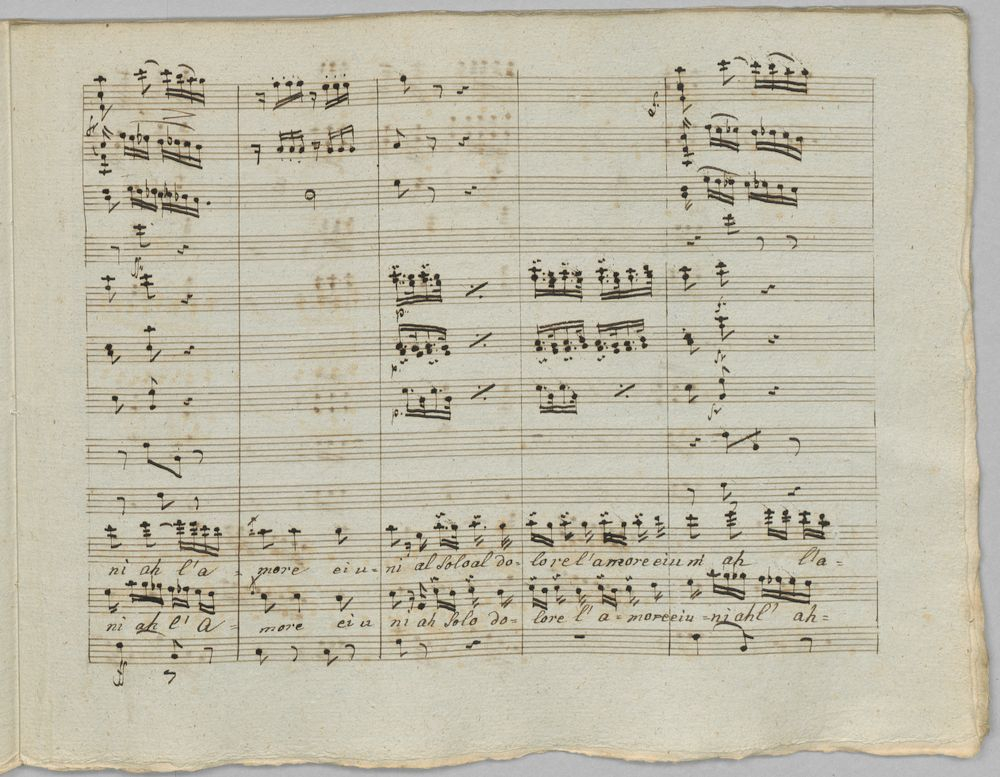 ni ah l'a - more ei u - ni al Solo al do - lore l'amore ei u ni ah l'a -
ni ah l' a - more ei u ni ah Solo do - lore l' a - more ei u - ni ah l' ah -